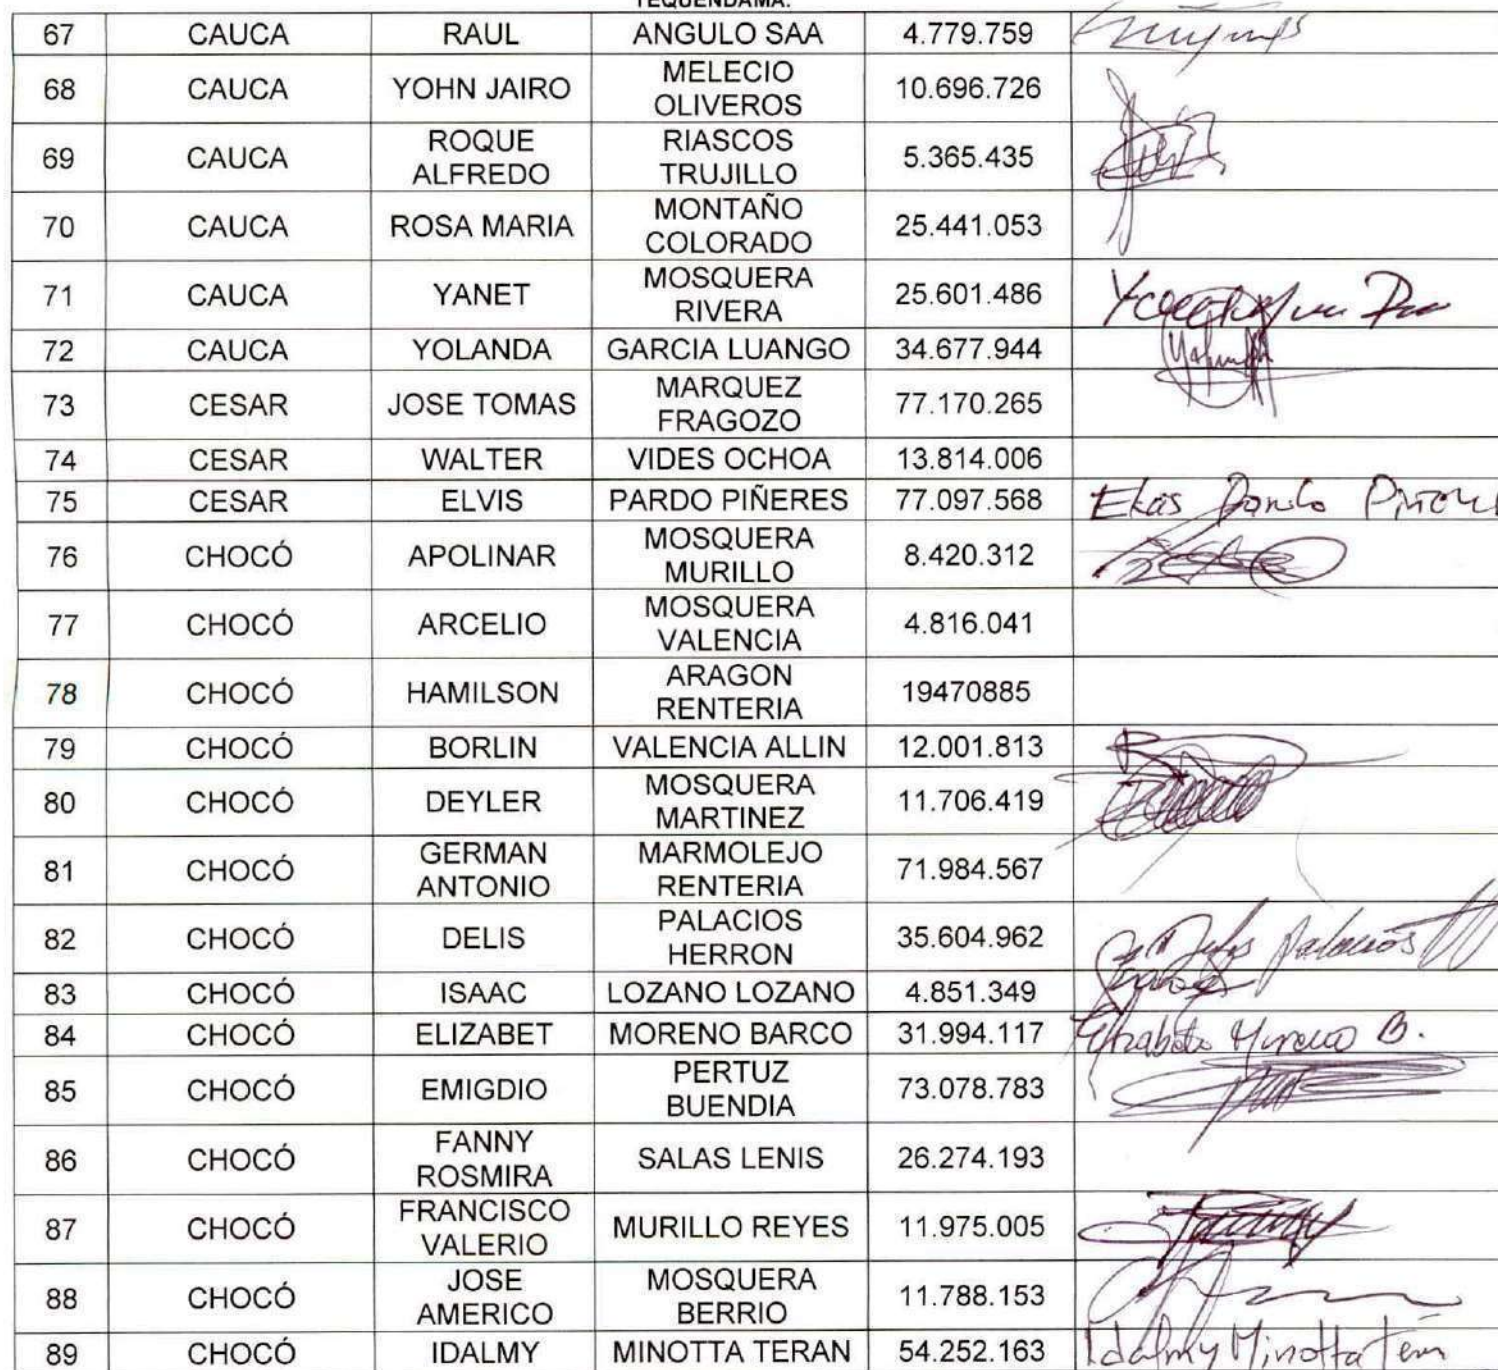 TEQUENDAMA.
67 CAUCA RAUL ANGULO SAA 4.779.759
68 CAUCA YOHN JAIRO MELECIO OLIVEROS 10.696.726
69 CAUCA ROQUE ALFREDO RIASCOS TRUJILLO 5.365.435
70 CAUCA ROSA MARIA MONTAÑO COLORADO 25.441.053
71 CAUCA YANET MOSQUERA RIVERA 25.601.486
72 CAUCA YOLANDA GARCIA LUANGO 34.677.944
73 CESAR JOSE TOMAS MARQUEZ FRAGOZO 77.170.265
74 CESAR WALTER VIDES OCHOA 13.814.006
75 CESAR ELVIS PARDO PIÑERES 77.097.568
76 CHOCÓ APOLINAR MOSQUERA MURILLO 8.420.312
77 CHOCÓ ARCELIO MOSQUERA VALENCIA 4.816.041
78 CHOCÓ HAMILSON ARAGON RENTERIA 19470885
79 CHOCÓ BORLIN VALENCIA ALLIN 12.001.813
80 CHOCÓ DEYLER MOSQUERA MARTINEZ 11.706.419
81 CHOCÓ GERMAN ANTONIO MARMOLEJO RENTERIA 71.984.567
82 CHOCÓ DELIS PALACIOS HERRON 35.604.962 Delis Palacios
83 CHOCÓ ISAAC LOZANO LOZANO 4.851.349
84 CHOCÓ ELIZABET MORENO BARCO 31.994.117 Moreno B.
85 CHOCÓ EMIGDIO PERTUZ BUENDIA 73.078.783
86 CHOCÓ FANNY ROSMIRA SALAS LENIS 26.274.193
87 CHOCÓ FRANCISCO VALERIO MURILLO REYES 11.975.005
88 CHOCÓ JOSE AMERICO MOSQUERA BERRIO 11.788.153
89 CHOCÓ IDALMY MINOTTA TERAN 54.252.163 Idalmy Minotta Terán